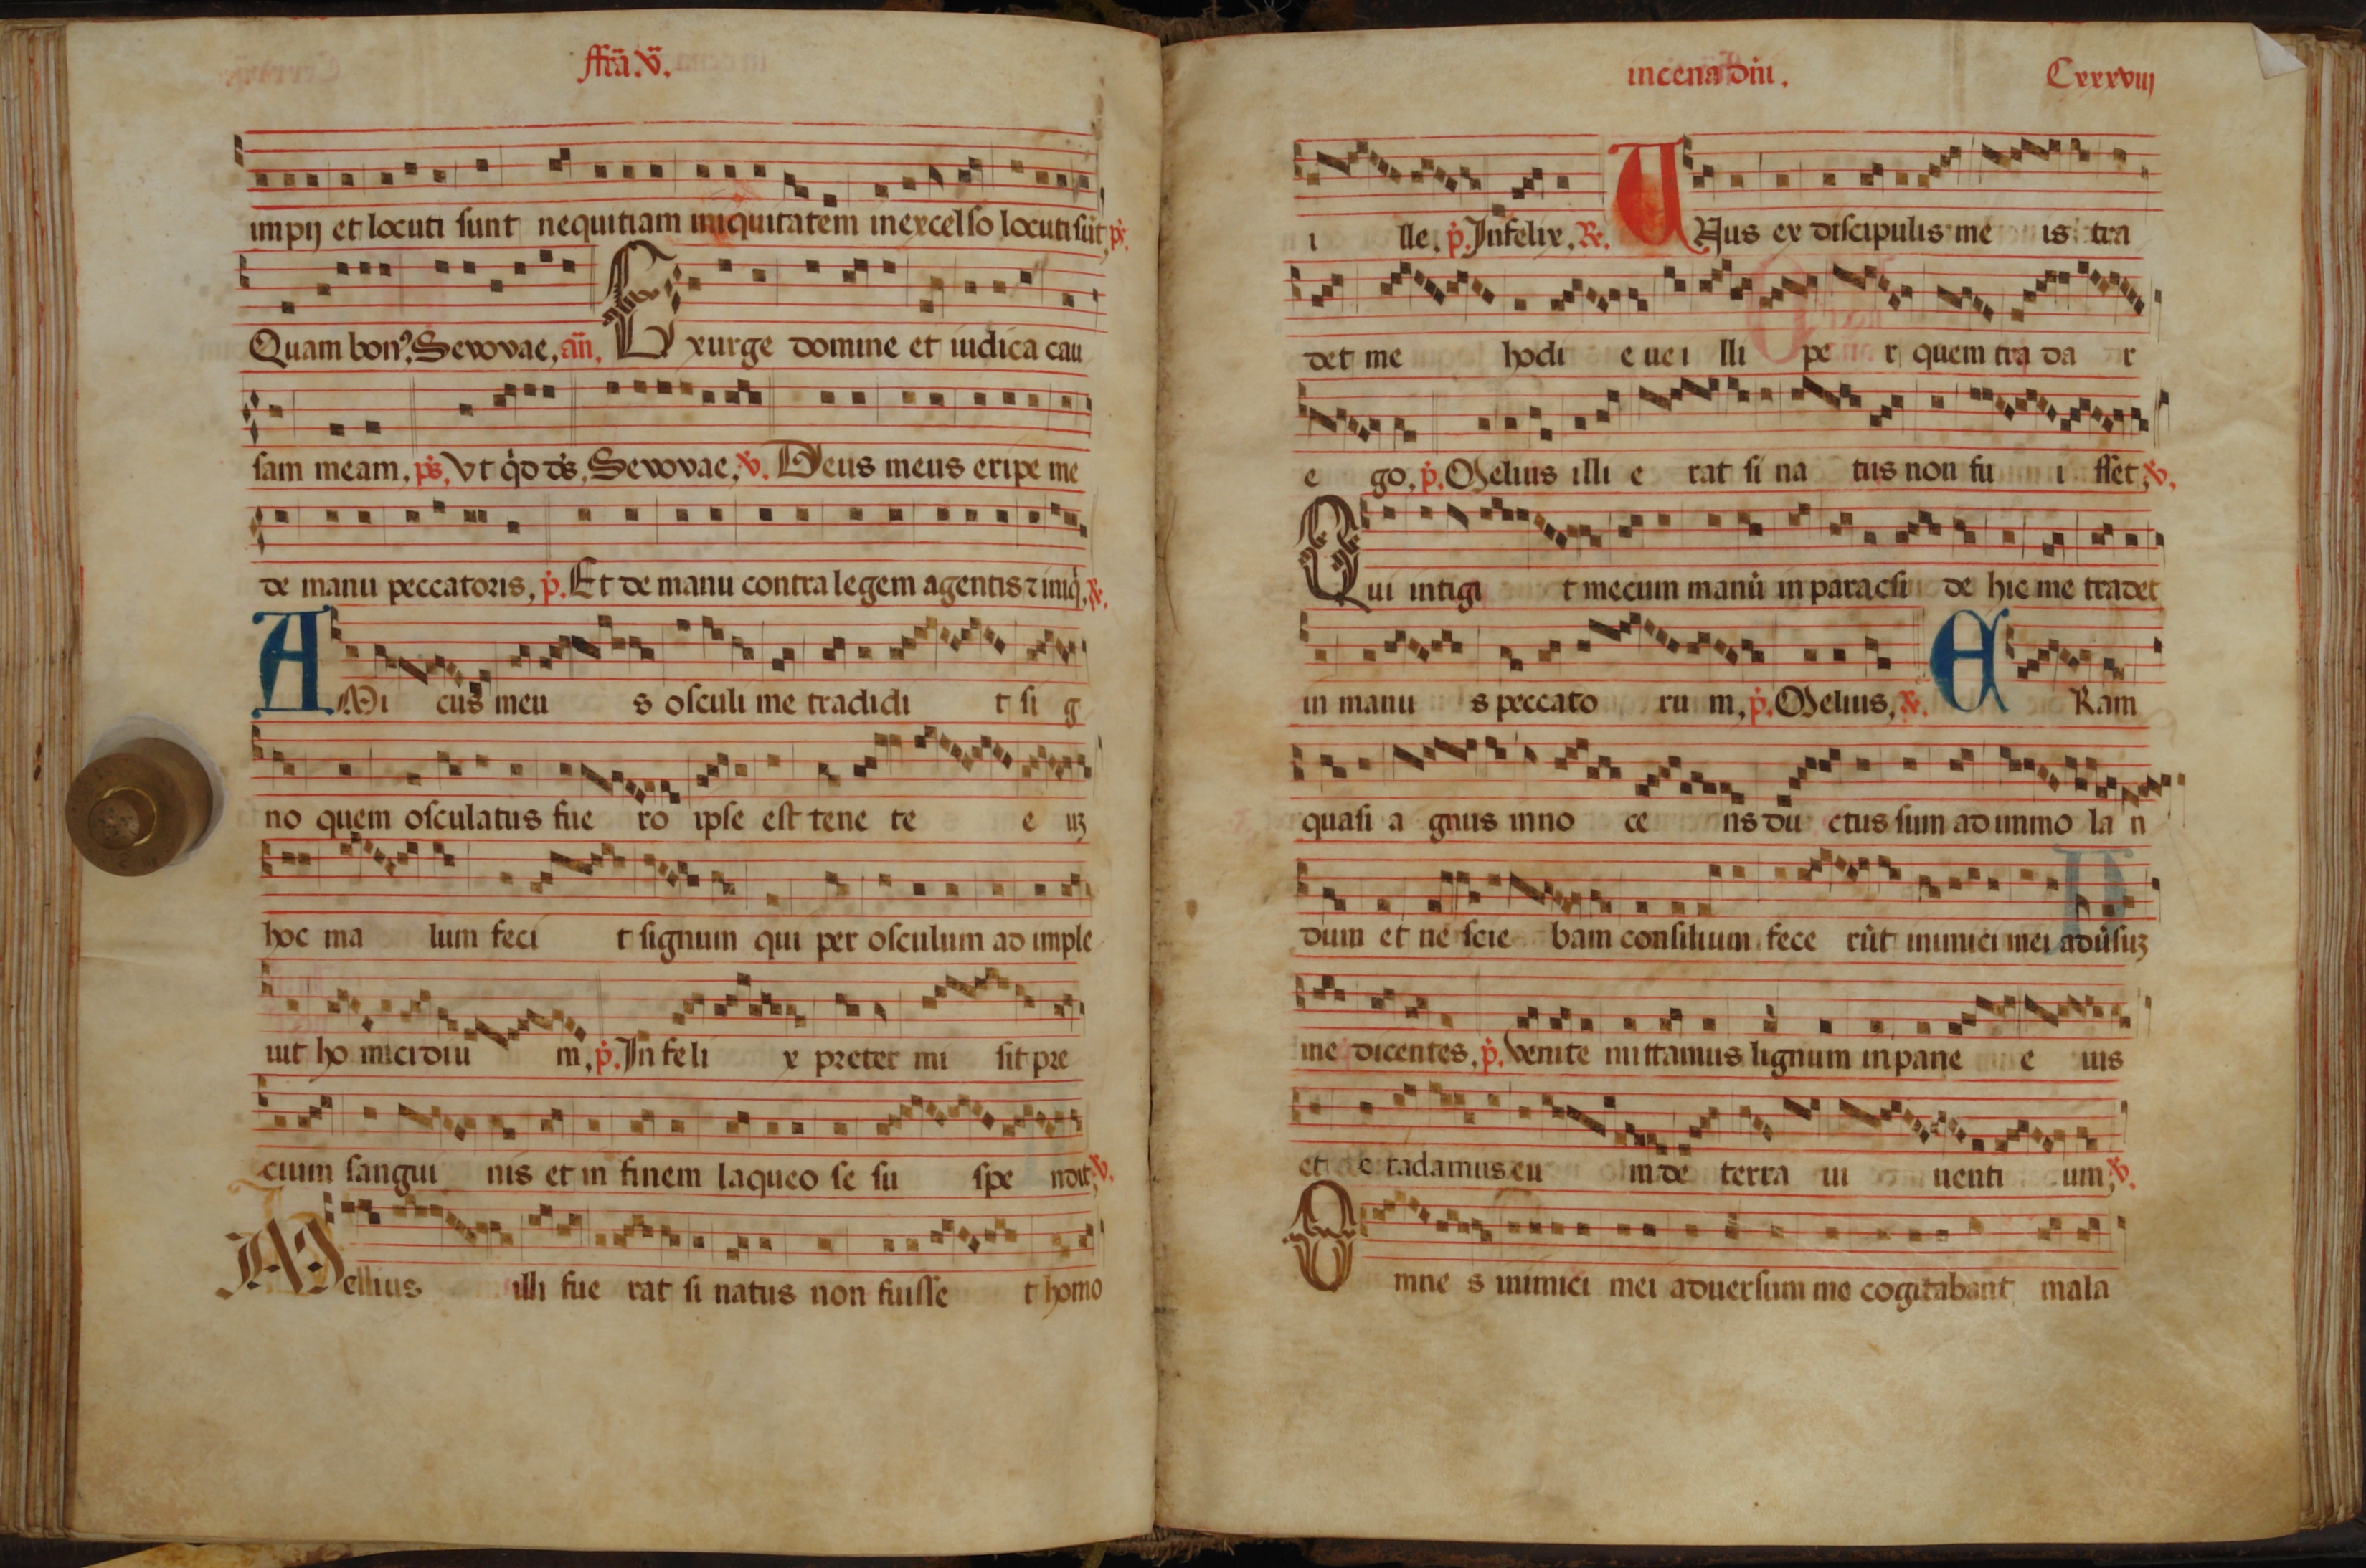 ffrã. v̈.
impij et locuti sunt nequitiam iniquitatem in excelso locuti sũt, ps̃.
Quam bonꝰ, Sevovae, añ. Exurge domine et iudica cau
sam meam, ps̃, Vt qͥd ds̃, Sevovae, ℣. Deus meus eripe me
de manu peccatoris, p̃. Et de manu contra legem agentis ⁊ iniqͥ, ℟.
AMi cus meu s osculi me tradidi t si g
no quem osculatus fue ro ipse est tene te e uꝫ
hoc ma lum feci t signum qui per osculum ad imple
uit ho micidiu m, p̃. In feli x preter mi sit pre
cium sangui nis et in finem laqueo se su spe ndit, ℣.
Mellius illi fue rat si natus non fuisse t homo
in cena dñi. Cxxxviij
i lle, p̃. Infelix, ℟. UNus ex discipulis me is tra
det me hodi e ue i lli pe r quem tra da r
e go, p̃. Melius illi e rat si na tus non fu i sset, ℣.
Qui intigi t mecum manũ in paracsi de hic me tradet
in manu s peccato ru m, p̃. Melius, ℟. ERam
quasi a gnus inno ce ns du ctus sum ad immo la n
dum et ne scie bam consilium fece rũt inimici mei adũsuꝫ
me dicentes, p̃. Venite mittamus lignum in pane e ius
et e radamus eu m de terra ui uenti um, ℣.
Omne s inimici mei aduersum me cogitabant mala